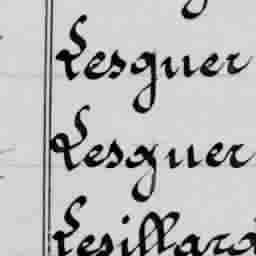 Lesguer
Lesguer
Lesillard